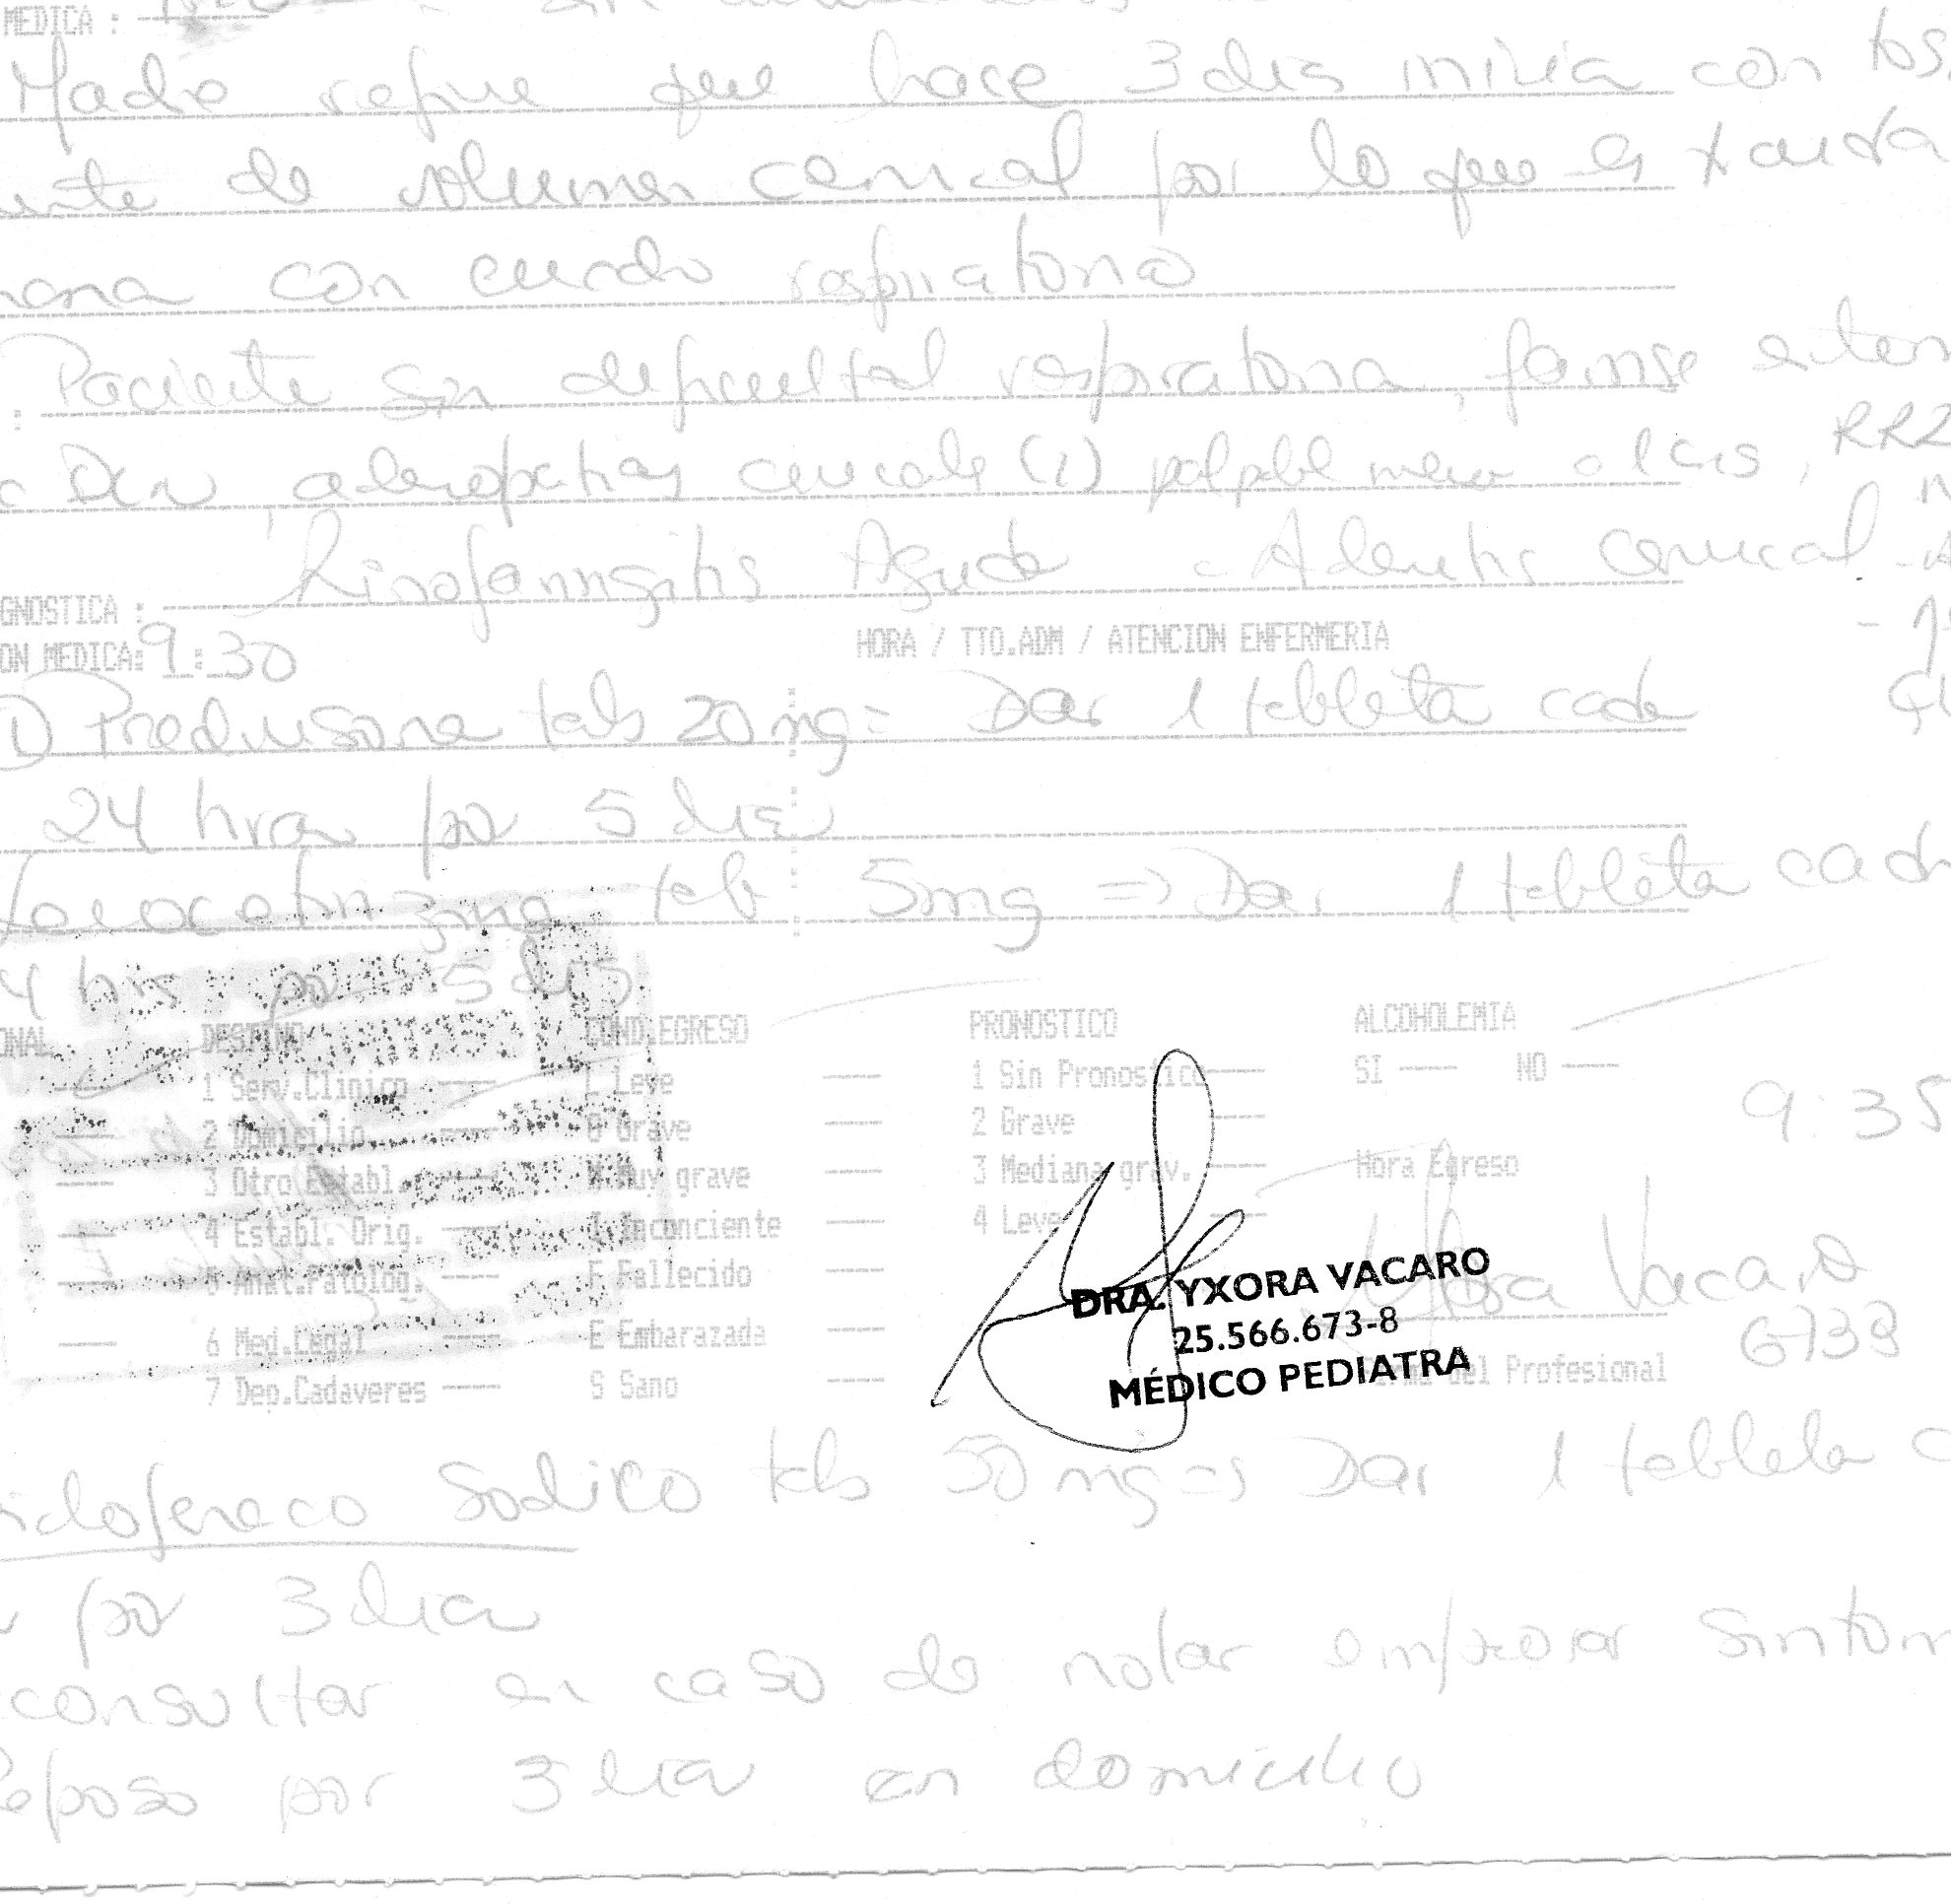 MEDICA :
Madre refiere que hace 3 dias inicia con tos,
de volumen cervical por lo que es traida
con cuadro respiratorio
Paciente sin dificultad respiratoria, faringe
adenopatias cervicales (2) palpable menor a 1 cms, RR2
Rinofaringitis Aguda - Adenitis Cervical
GNOSTICA :
ON MEDICA: 9:30 HORA / TTO.ADM / ATENCION ENFERMERIA
1) Prednisona tab 20 mg = Dar 1 tableta cada
24 hrs por 5 dias
tab 5mg => Dar 1 tableta cada
4 hrs por 5 dias
ONAL DESTINO COND.EGRESO PRONOSTICO ALCOHOLEMIA
1 Serv.Clinico L Leve 1 Sin Pronostico SI NO
2 Domicilio G Grave 2 Grave 9:35
3 Otro Establ. M Muy grave 3 Mediana grav. Hora Egreso
4 Establ. Orig. I Inconciente 4 Leve
5 Anat.Patolog. F Fallecido
DRA. YXORA VACARO Vacaro
25.566.673-8
6 Med.Legal E Embarazada
MÉDICO PEDIATRA Firma del Profesional
7 Dep.Cadaveres S Sano
Diclofenaco Sodico tab 50 mg => Dar 1 tableta c
por 3 dias
consultar en caso de notar empeorar sintom
Reposo por 3 dias en domicilio